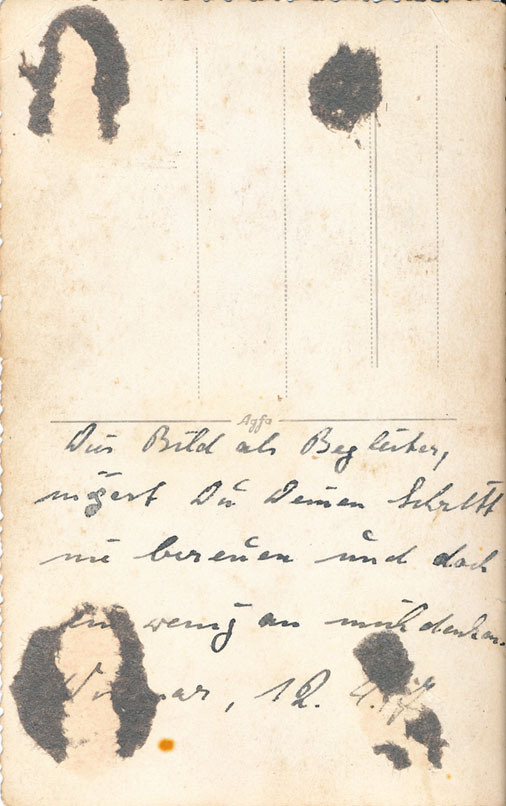 Agfa
Dies Bild als Begleiter,
mögest Du Deinen Schritt
nie bereuen und doch
ein wenig an mich denken.
12. 4.